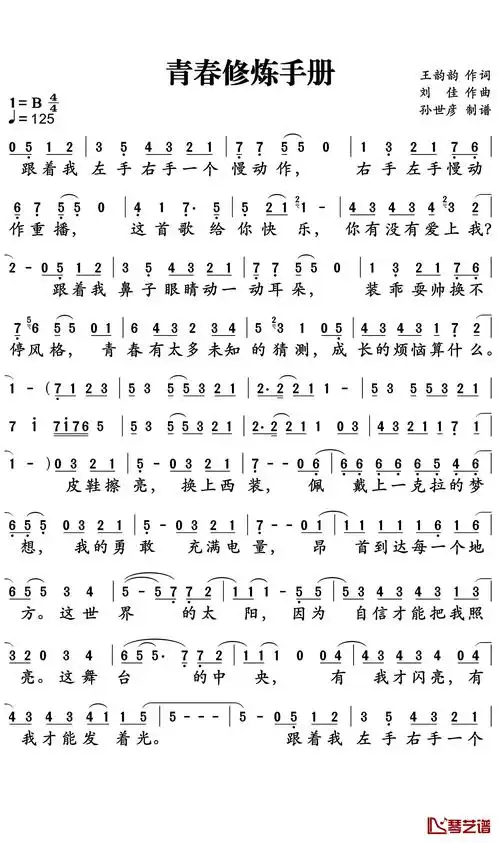 青春修炼手册
王韵韵 作词
1=B 4/4
刘 佳 作曲
♩=125
孙世彦 制谱
0 5 1 2 | 3 5 4 3 2 1 | 7 7 5 5 0 | 1 3 2 1 7 6 |
跟着我 左手右手一个 慢动作, 右手左手慢动
6 7 5 5 0 | 4 1 7· 5 | 5 2 1 2 1 - | 4 3 4 3 4 2 3 2 |
作重播, 这首歌给你快乐,你有没有爱上我?
2 - 0 5 1 2 | 3 5 4 3 2 1 | 7 7 5 5 0 | 1 3 2 1 7 6 |
跟着我 鼻子眼睛动一动耳朵, 装乖耍帅换不
7 5 6 5 5 0 1 | 6 4 3 2 3 4 | 5 2 3 1 0 5 | 4 3 4 3 4 3 2 1 |
停风格,青春有太多未知的猜测,成长的烦恼算什么。
1 - ( 7 1 2 3 | 5 3 5 5 3 2 1 | 2· 2 2 1 1 | 5 3 5 5 3 5 |
7 i 7 i 7 6 5 | 5 3 5 5 3 2 1 | 2· 2 2 1 0 1 | 4 3 4 3 2 1 7 1 |
1 - ) 0 3 2 1 | 5 3 0 3 2 1 | 7 - - 0 6 | 6 6 6 6 6 5 4 6 |
皮鞋擦 亮,换上西 装, 佩 戴上一克拉的梦
6 5 5 0 3 2 1 | 5 3 0 3 2 1 | 7 - - 0 1 | 1 1 1 1 1 6 1 |
想,我的勇 敢 充满电 量, 昂 首到达每一个地
6 5 5 3 4 | 5 - 5 7 7 | 7 2 2 0 3 4 | 5 4 3 4 3 1 3 4 |
方。这世 界 的太 阳,因为 自信才能把我照
3 2 0 3 4 | 6 5 5· 7 7 | 2 2 1 1 0 1 | 4 3 4 3 1 0 1 |
亮。这舞 台 的中 央, 有 我才闪亮,有
4 3 4 3 4 1 | 1 5 - - | 5 - - - | - 0 5 1 2 | 3 5 4 3 2 1 |
我才能发 着光。 跟着我 左手右手一个
琴艺谱